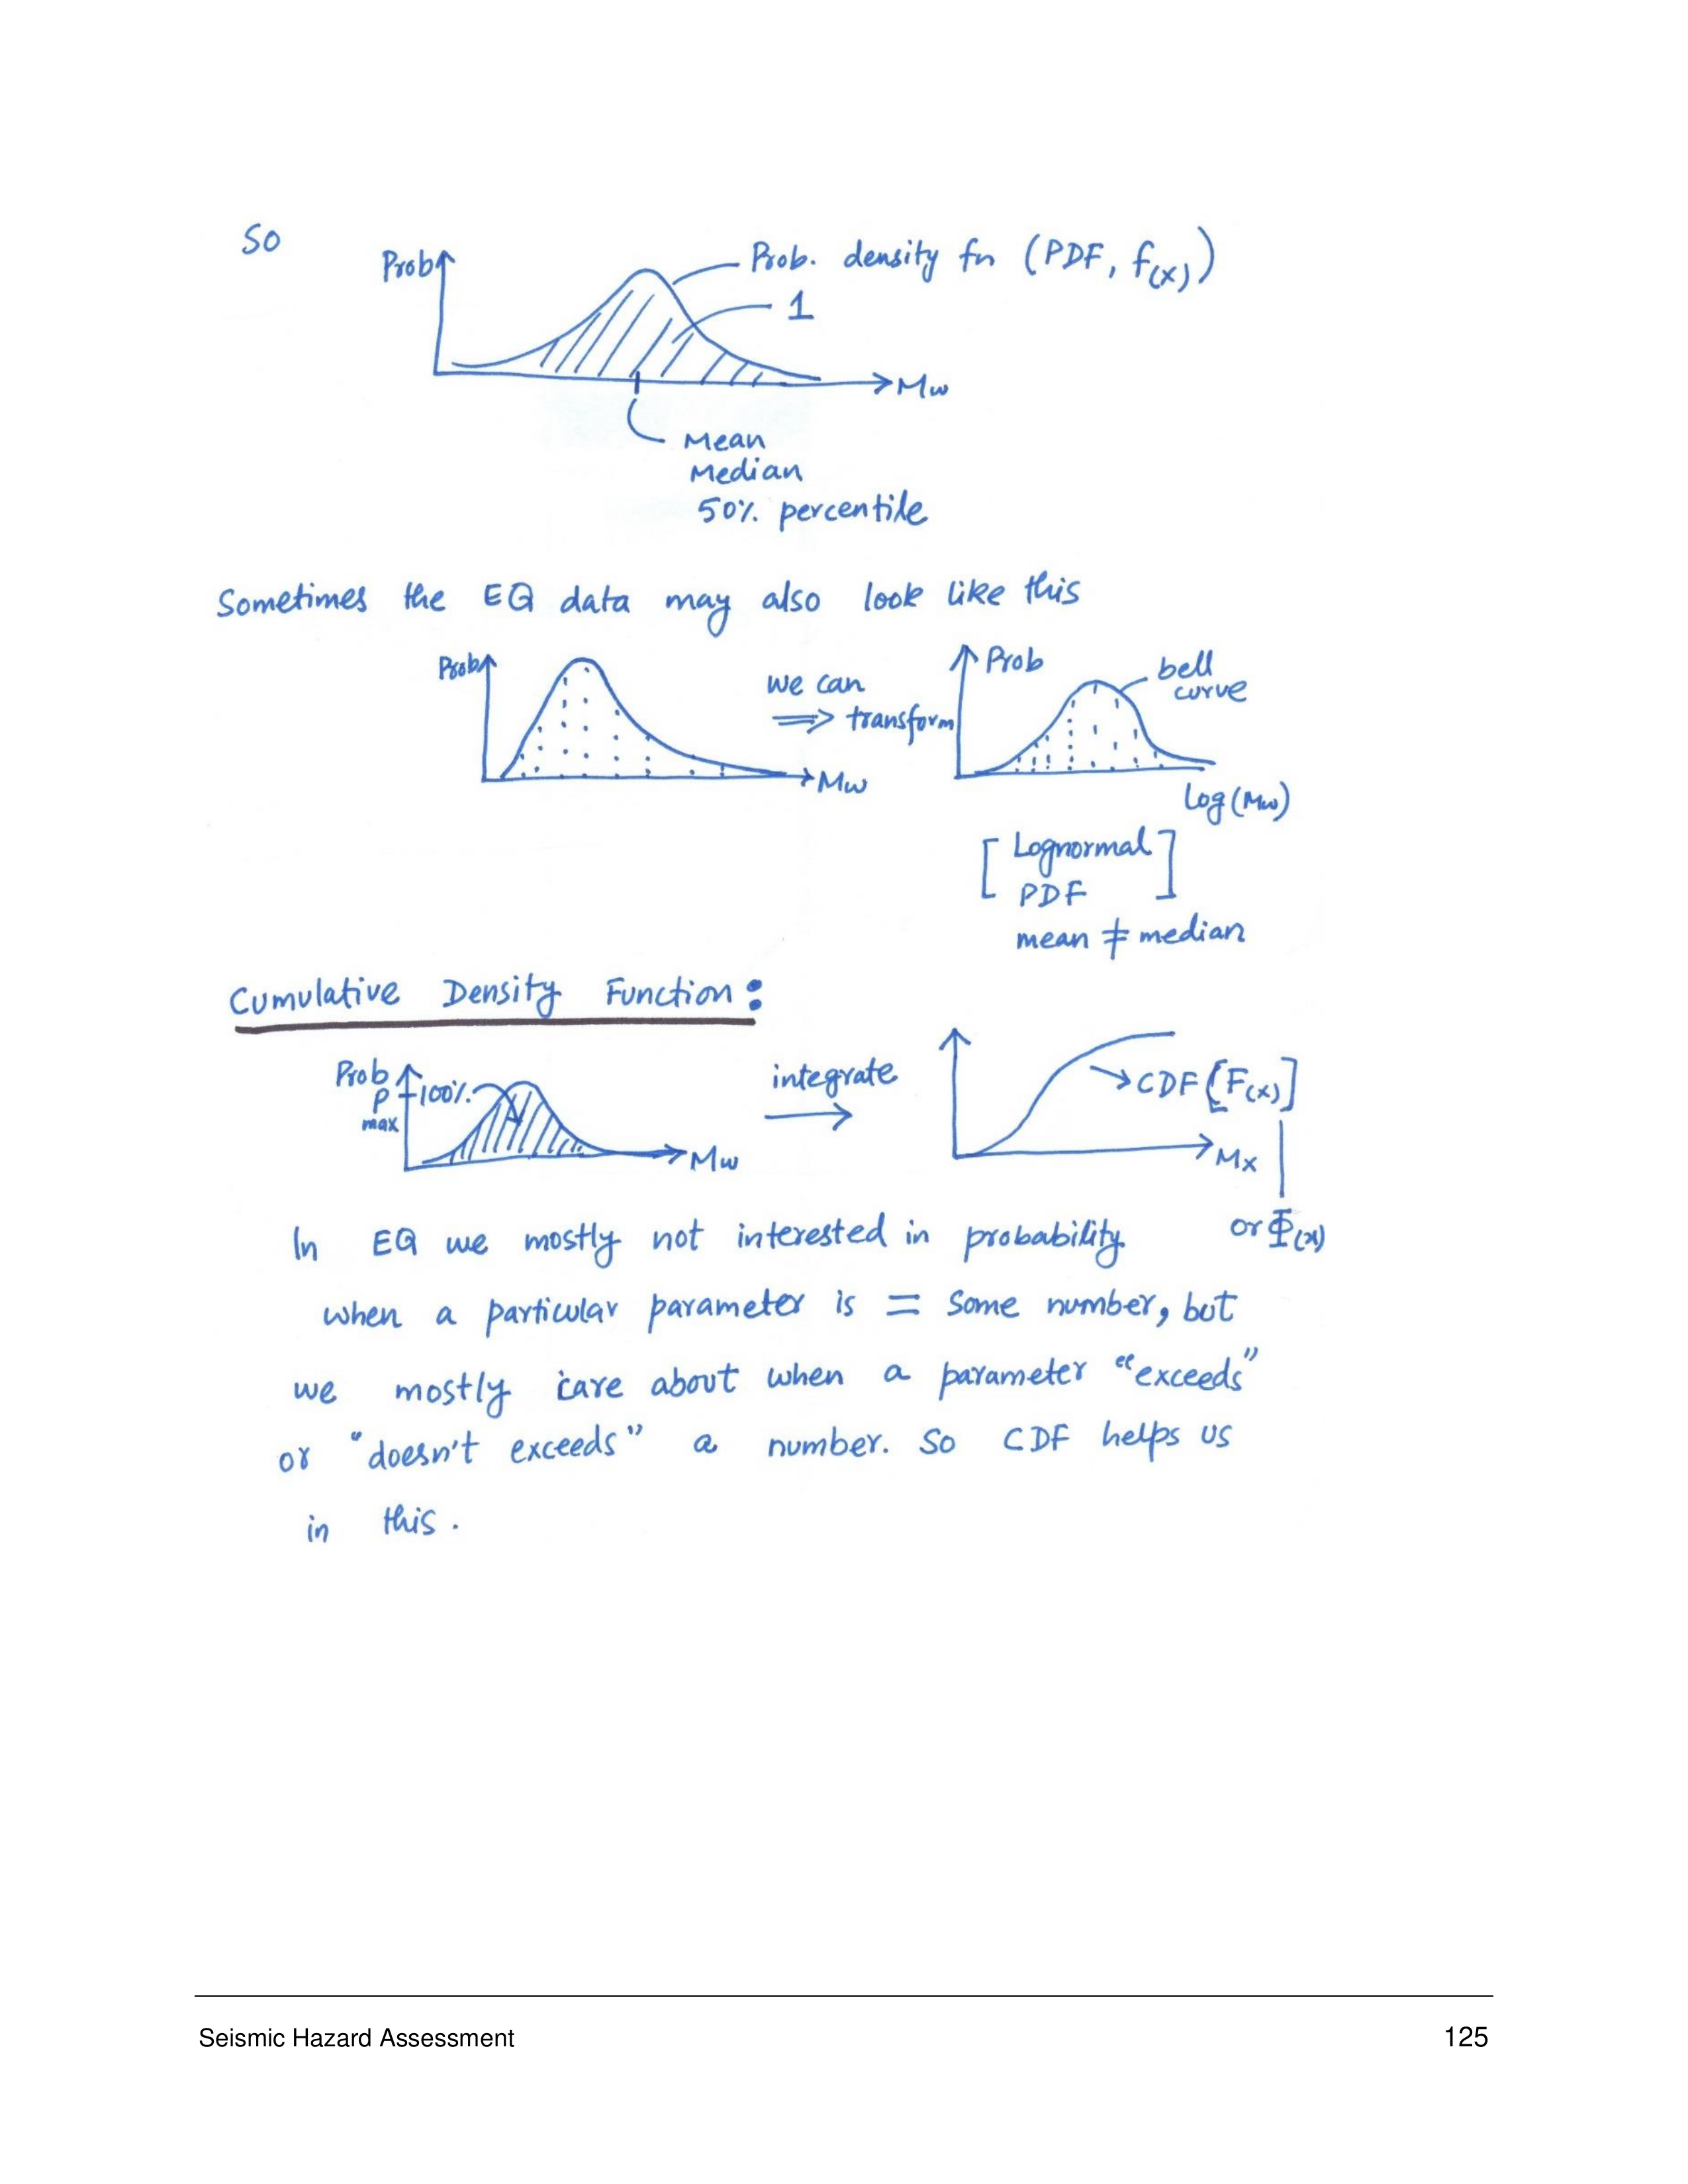 So
Prob
Prob. density fn (PDF, f(x))
1
Mw
Mean
Median
50% percentile
Sometimes the EQ data may also look like this
Prob
Mw
we can
⇒ transform
Prob
bell
curve
log (Mw)
[ Lognormal
PDF ]
mean ≠ median
Cumulative Density Function:
Prob
P
max
100%
Mw
integrate
→
CDF [F(x)]
Mx
or Φ(x)
In EQ we mostly not interested in probability
when a particular parameter is = some number, but
we mostly care about when a parameter "exceeds"
or "doesn't exceeds" a number. So CDF helps us
in this.
Seismic Hazard Assessment 125